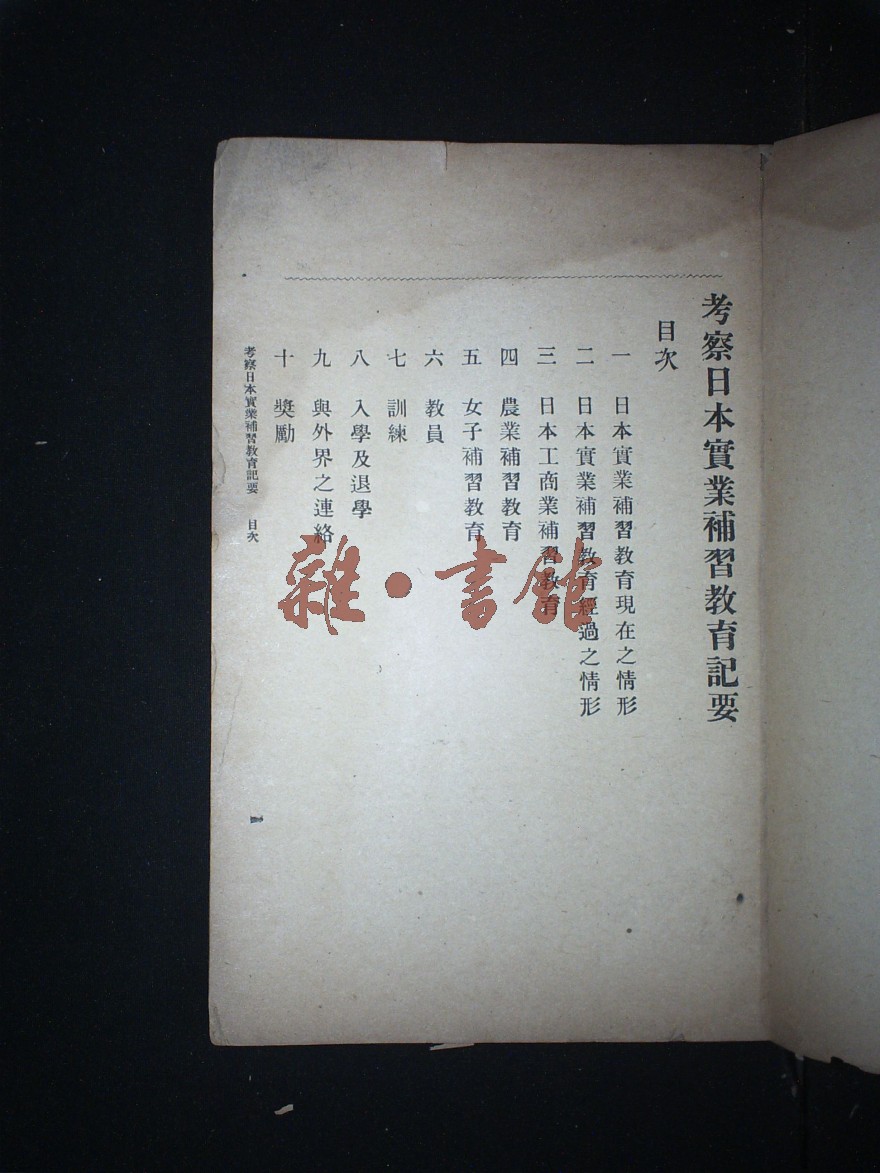 考察日本實業補習教育記要
目次
一 日本實業補習教育現在之情形
二 日本實業補習教育經過之情形
三 日本工商業補習教育
四 農業補習教育
五 女子補習教育
六 教員
七 訓練
八 入學及退學
九 與外界之連絡
十 獎勵
考察日本實業補習教育記要 目次
雜·書館